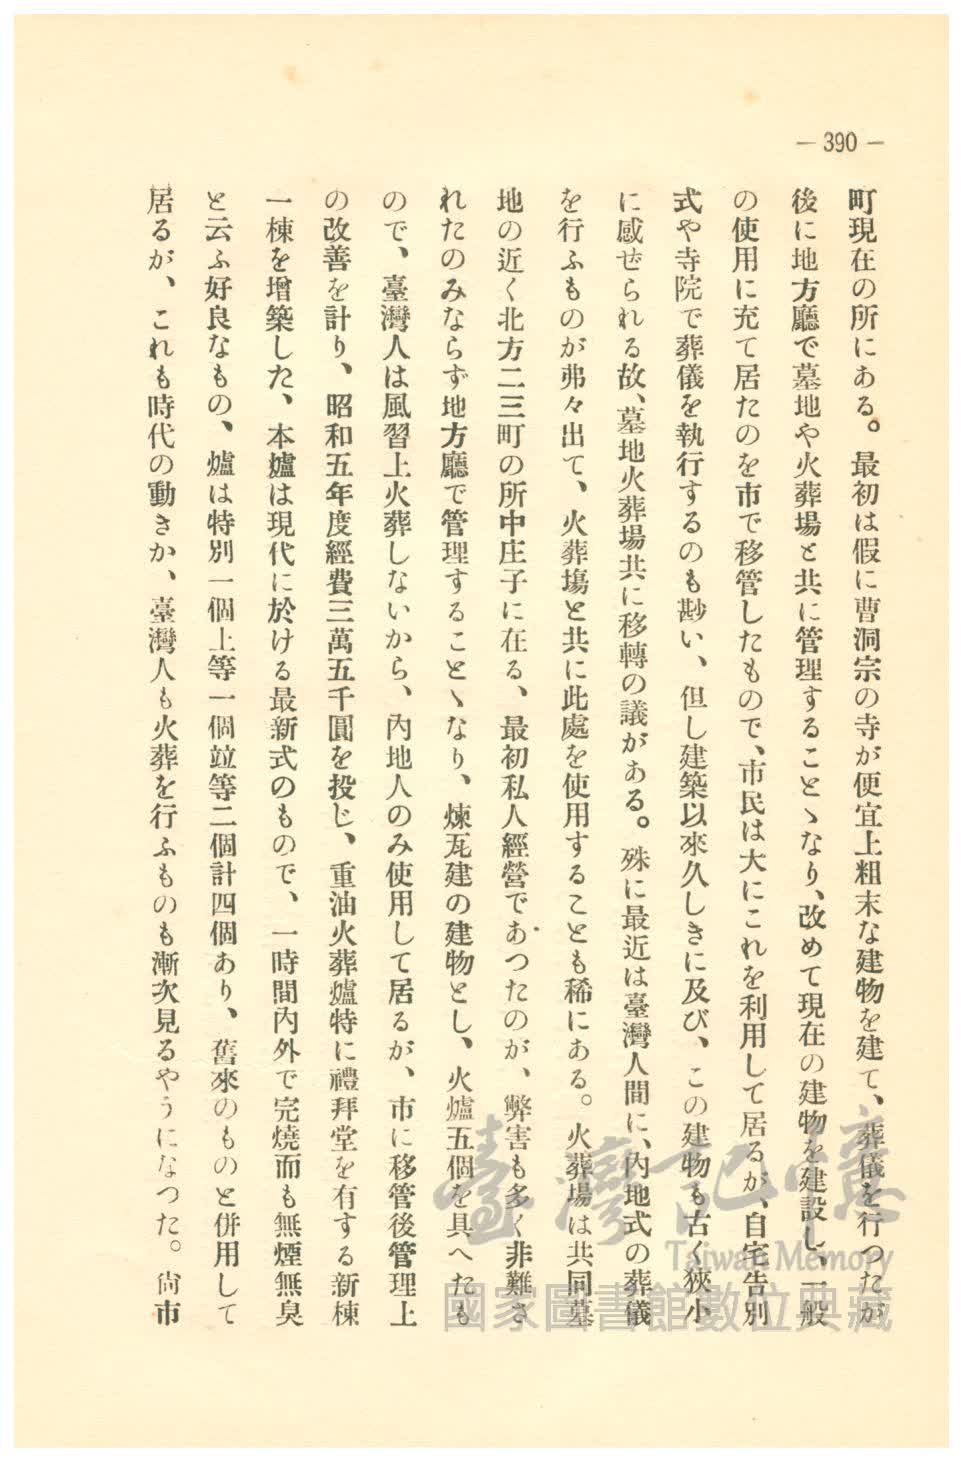 — 390 —
町現在の所にある。最初は假に曹洞宗の寺が便宜上粗末な建物を建て、葬儀を行つたが
後に地方廳で墓地や火葬場と共に管理することヽなり、改めて現在の建物を建設し、一般
の使用に充て居たのを市で移管したもので、市民は大にこれを利用して居るが、自宅告別
式や寺院で葬儀を執行するのも尠い、但し建築以來久しきに及び、この建物も古く狹小
に感ぜられる故、墓地火葬場共に移轉の議がある。殊に最近は臺灣人間に、內地式の葬儀
を行ふものが弗々出て、火葬塲と共に此處を使用することも稀にある。火葬場は共同墓
地の近く北方二三町の所中庄子に在る、最初私人經營であつたのが、弊害も多く非難さ
れたのみならず地方廳で管理することヽなり、煉瓦建の建物とし、火爐五個を具へたも
ので、臺灣人は風習上火葬しないから、內地人のみ使用して居るが、市に移管後管理上
の改善を計り、昭和五年度經費三萬五千圓を投じ、重油火葬爐特に禮拜堂を有する新棟
一棟を增築した、本爐は現代に於ける最新式のもので、一時間內外で完燒而も無煙無臭
と云ふ好良なもの、爐は特別一個上等一個竝等二個計四個あり、舊來のものと併用して
居るが、これも時代の動きか、臺灣人も火葬を行ふものも漸次見るやうになつた。尙市
臺灣記憶
Taiwan Memory
國家圖書館數位典藏